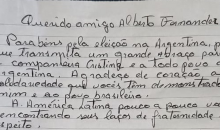 Querido amigo Alberto Fernandez
Parabéns pela eleição na Argentina, p
que transmita um grande abraço pa
companheira Cristina e a todo povo
Argentina. Agradeço de coração, a
solidariedade que vocês têm demonstrado
e ao povo brasileiro.
A América Latina pouco a pouco va
encontrando seus laços de fraternidade
speito.